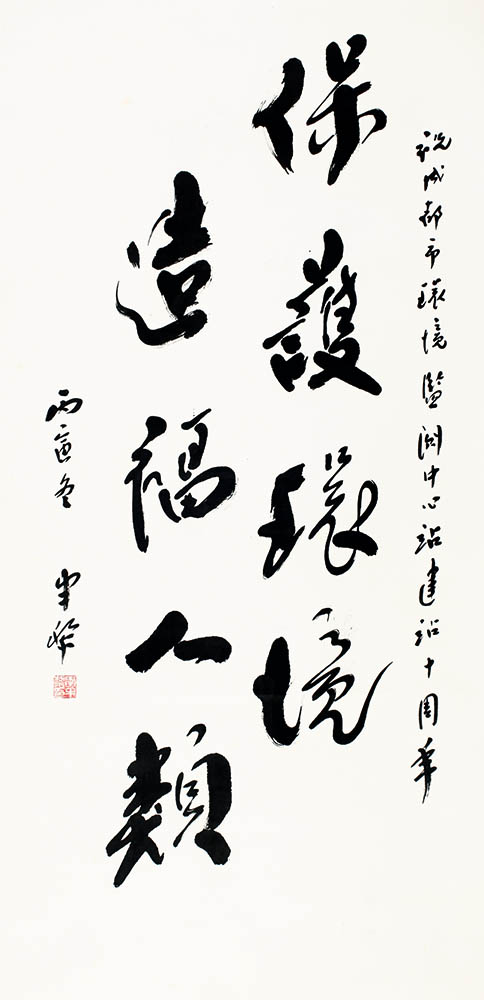 祝成都市環境監測中心站建站十周年
保護環境
造福人類
丙寅冬